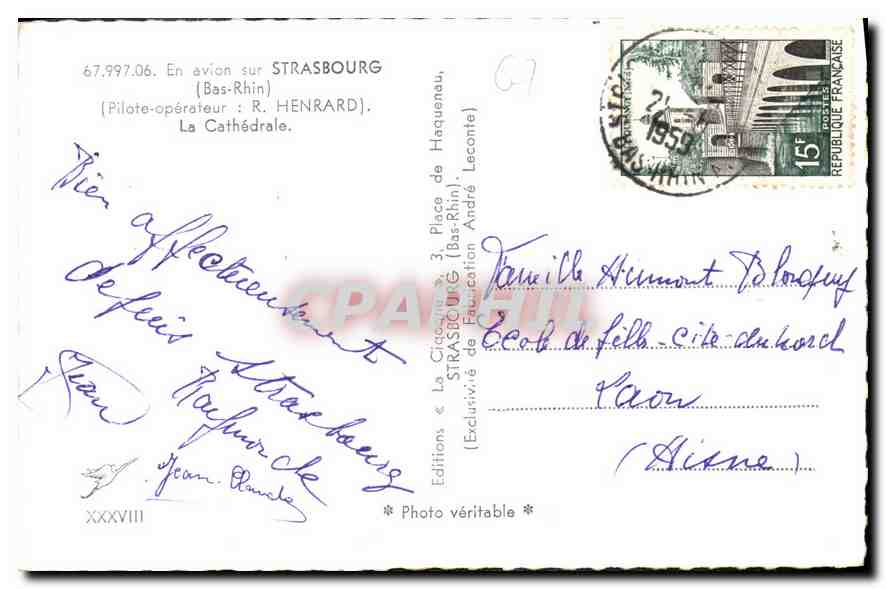 67.997.06. En avion sur STRASBOURG
(Bas-Rhin)
(Pilote-opérateur : R. HENRARD).
La Cathédrale.
Bien affectueusement
depuis Strasbourg
Jean
Raymonde
Jean Claude
XXXVIII
Editions « La Cigogne », 3, Place de Haguenau,
STRASBOURG (Bas-Rhin).
(Exclusivité de Fabrication André Leconte)
* Photo véritable *
G7
15F
POSTES
RÉPUBLIQUE FRANÇAISE
1959
BAS-RHIN
Famille
Ecole de fille - Cité du nord
Laon
(Aisne)
CPARHIL